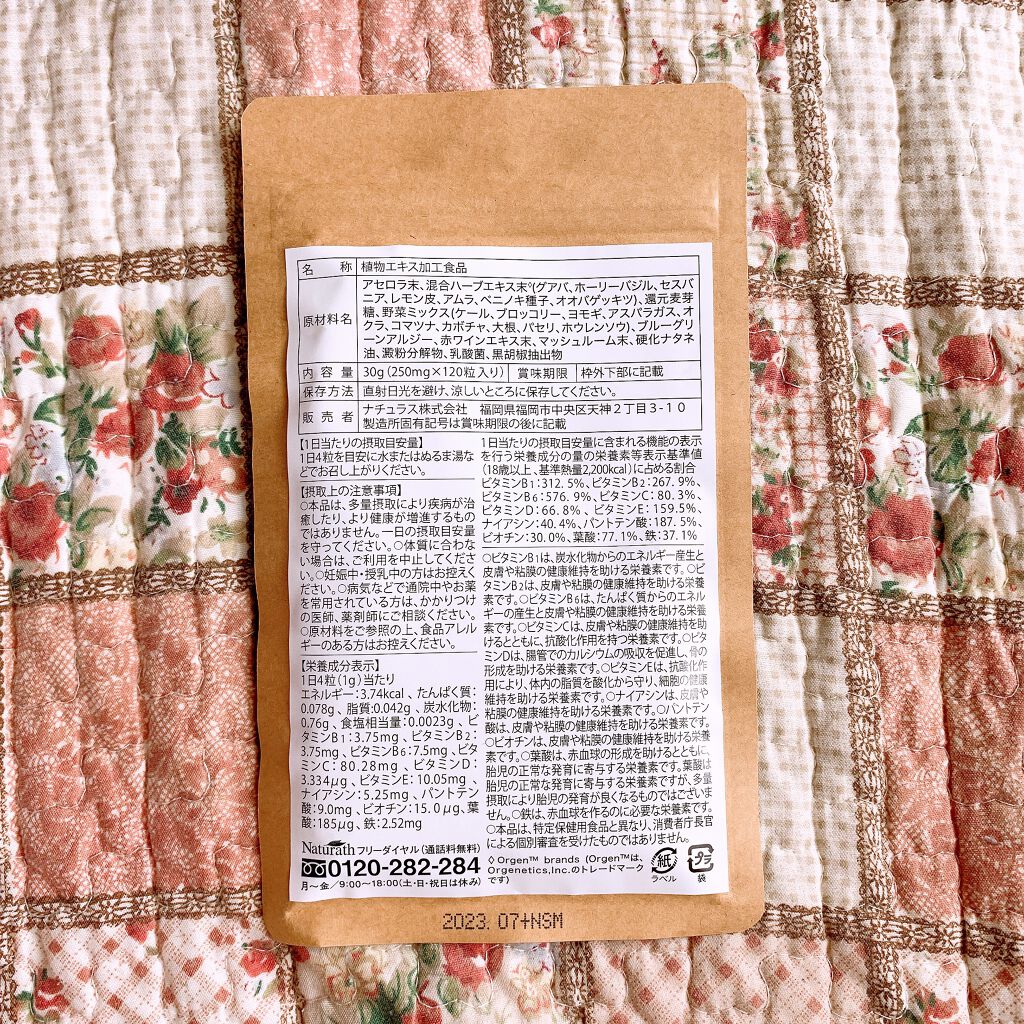 名 称 植物エキス加工食品
原材料名 アセロラ末、混合ハーブエキス末◊(グアバ、ホーリーバジル、セスバ
ニア、レモン皮、アムラ、ベニノキ種子、オオバゲッキツ)、還元麦芽
糖、野菜ミックス(ケール、ブロッコリー、ヨモギ、アスパラガス、オ
クラ、コマツナ、カボチャ、大根、パセリ、ホウレンソウ)、ブルーグリ
ーンアルジー、赤ワインエキス末、マッシュルーム末、硬化ナタネ
油、澱粉分解物、乳酸菌、黒胡椒抽出物
内 容 量 30g(250mg×120粒入り) 賞味期限 枠外下部に記載
保存方法 直射日光を避け、涼しいところに保存してください。
販 売 者 ナチュラス株式会社 福岡県福岡市中央区天神2丁目3-10
製造所固有記号は賞味期限の後に記載
【1日当たりの摂取目安量】
1日4粒を目安に水またはぬるま湯な
どでお召し上がりください。
【摂取上の注意事項】
○本品は、多量摂取により疾病が治
癒したり、より健康が増進するもの
ではありません。一日の摂取目安量
を守ってください。○体質に合わな
い場合は、ご利用を中止してくださ
い。○妊娠中・授乳中の方はお控えく
ださい。○病気などで通院中やお薬
を常用されている方は、かかりつけ
の医師、薬剤師にご相談ください。
○原材料をご参照の上、食品アレル
ギーのある方はお控えください。
【栄養成分表示】
1日4粒(1g)当たり
エネルギー:3.74kcal、たんぱく質:
0.078g、脂質:0.042g、炭水化物:
0.76g、食塩相当量:0.0023g、ビ
タミンB1:3.75mg、ビタミンB2:
3.75mg、ビタミンB6:7.5mg、ビタ
ミンC:80.28mg、ビタミンD:
3.334μg、ビタミンE:10.05mg
、ナイアシン:5.25mg、パントテン
酸:9.0mg、ビオチン:15.0μg、葉
酸:185μg、鉄:2.52mg
1日当たりの摂取目安量に含まれる機能の表示
を行う栄養成分の量の栄養素等表示基準値
(18歳以上、基準熱量2,200kcal)に占める割合
ビタミンB1:312.5%、ビタミンB2:267.9%、
ビタミンB6:576.9%、ビタミンC:80.3%、
ビタミンD:66.8%、ビタミンE:159.5%、
ナイアシン:40.4%、パントテン酸:187.5%、
ビオチン:30.0%、葉酸:77.1%、鉄:37.1%
○ビタミンB1は、炭水化物からのエネルギー産生と
皮膚や粘膜の健康維持を助ける栄養素です。○ビ
タミンB2は、皮膚や粘膜の健康維持を助ける栄養
素です。○ビタミンB6は、たんぱく質からのエネル
ギーの産生と皮膚や粘膜の健康維持を助ける栄養
素です。○ビタミンCは、皮膚や粘膜の健康維持を助
けるとともに、抗酸化作用を持つ栄養素です。○ビタ
ミンDは、腸管でのカルシウムの吸収を促進し、骨の
形成を助ける栄養素です。○ビタミンEは、抗酸化作
用により、体内の脂質を酸化から守り、細胞の健康
維持を助ける栄養素です。○ナイアシンは、皮膚や
粘膜の健康維持を助ける栄養素です。○パントテン
酸は、皮膚や粘膜の健康維持を助ける栄養素です。
○ビオチンは、皮膚や粘膜の健康維持を助ける栄養
素です。○葉酸は、赤血球の形成を助けるとともに、
胎児の正常な発育に寄与する栄養素です。葉酸は
胎児の正常な発育に寄与する栄養素ですが、多量
摂取により胎児の発育が良くなるものではありま
せん。○鉄は、赤血球を作るのに必要な栄養素です。
○本品は、特定保健用食品と異なり、消費者庁長官
による個別審査を受けたものではありません。
Naturath フリーダイヤル(通話料無料)
0120-282-284
月～金/9:00～18:00(土・日・祝日は休み)
◊ Orgen™ brands (Orgen™は、
Orgenetics,Inc.のトレードマーク
です)
紙
ラベル
プラ
袋
2023. 07+NSM